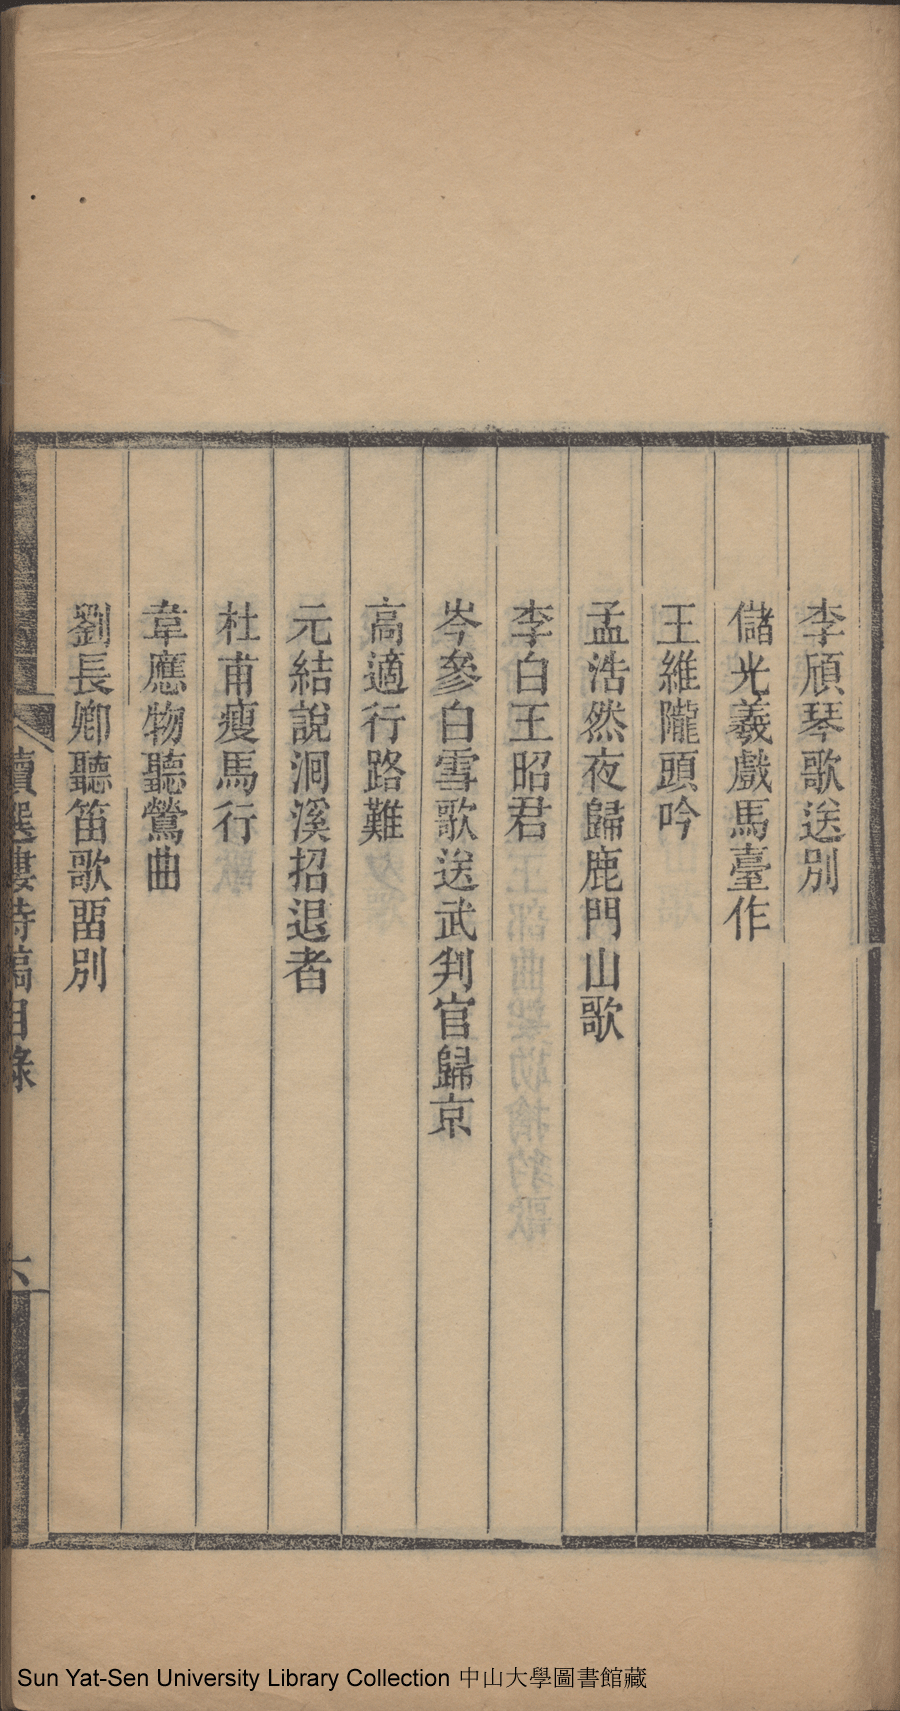 李頎琴歌送別
儲光羲戲馬臺作
王維隴頭吟
孟浩然夜歸鹿門山歌
李白王昭君
岑參白雪歌送武判官歸京
高適行路難
元結說洄溪招退者
杜甫瘦馬行
韋應物聽鶯曲
劉長卿聽笛歌畱別
讀選樓詩稿目錄
六
Sun Yat-Sen University Library Collection 中山大學圖書館藏